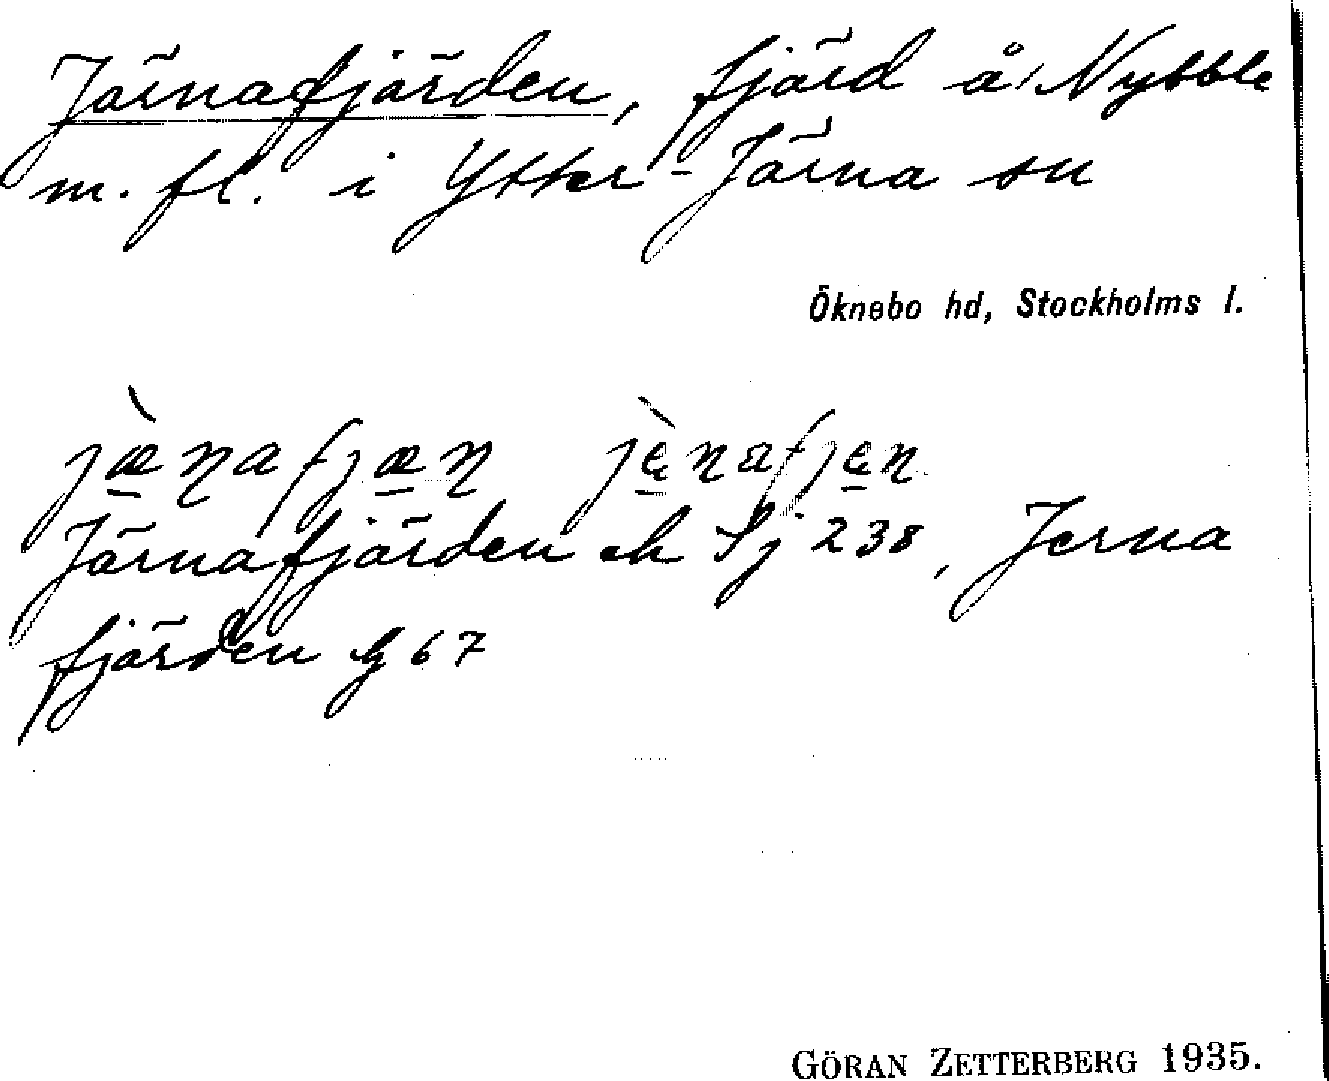 Järnafjärden, fjärd å Nybble
m. fl. i Ytter-Järna sn
Öknebo hd, Stockholms l.
Järnafjärden ek Sj 238, Jerna
fjärden 67
GÖRAN ZETTERBERG 1935.